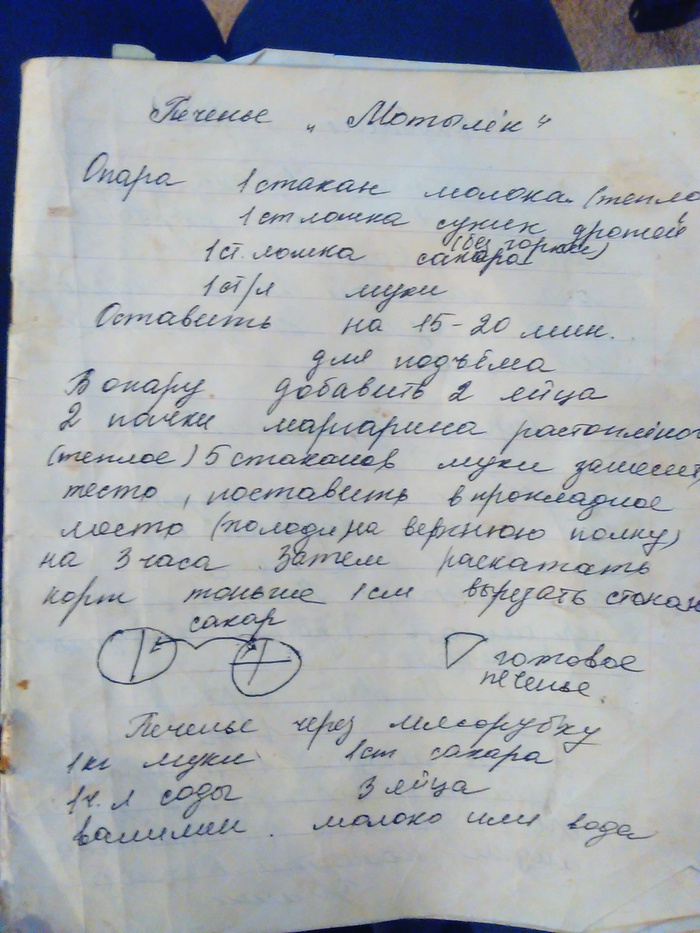 Печенье „ Мотылёк"
Опара 1 стакан молока (тепло
1 ст ложка сухих дрожей
(без горки)
1 ст. ложка сахара
1 ст/л муки
Оставить на 15-20 мин.
для подъёма
В опару добавить 2 яйца
2 пачки маргарина растоплёног
(теплое) 5 стаканов муки замесит
тесто, поставить в прохладное
место (холоди, на верхнюю полку)
на 3 часа. Затем раскатать
корж тоньше 1 см вырезать стакан
сахар
готовое
печенье.
Печенье через мясорубку
1 кг муки 1 ст сахара
1 ч. л соды 3 яйца
ванилин. молоко или вода